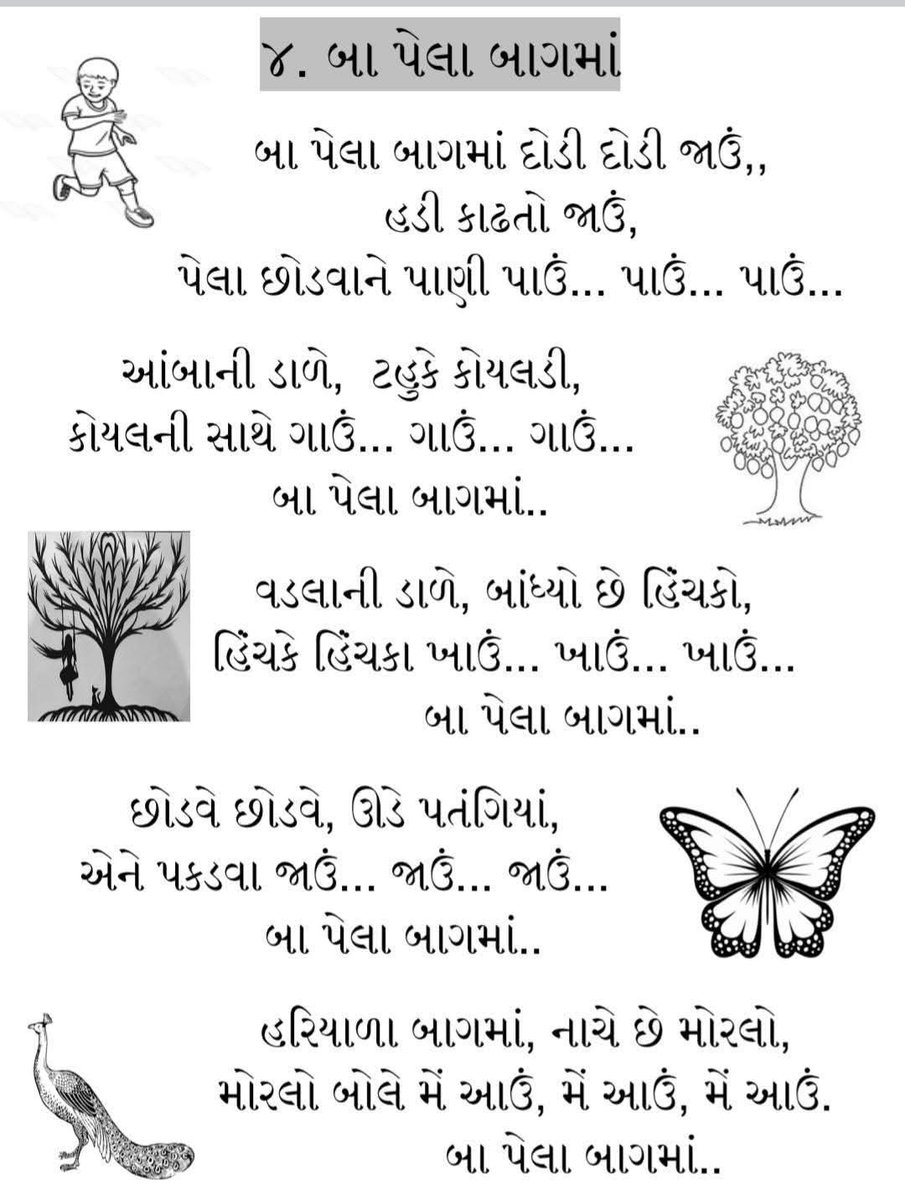 ૪. બા પેલા બાગમાં
બા પેલા બાગમાં દોડી દોડી જાઉં,,
હડી કાઢતો જાઉં,
પેલા છોડવાને પાણી પાઉં... પાઉં... પાઉં...
આંબાની ડાળે, ટહુકે કોયલડી,
કોયલની સાથે ગાઉં... ગાઉં... ગાઉં...
બા પેલા બાગમાં..
વડલાની ડાળે, બાંધ્યો છે હિંચકો,
હિંચકે હિંચકા ખાઉં... ખાઉં... ખાઉં...
બા પેલા બાગમાં..
છોડવે છોડવે, ઊડે પતંગિયાં,
એને પકડવા જાઉં... જાઉં... જાઉં...
બા પેલા બાગમાં..
હરિયાળા બાગમાં, નાચે છે મોરલો,
મોરલો બોલે મેં આઉં, મેં આઉં, મેં આઉં.
બા પેલા બાગમાં..